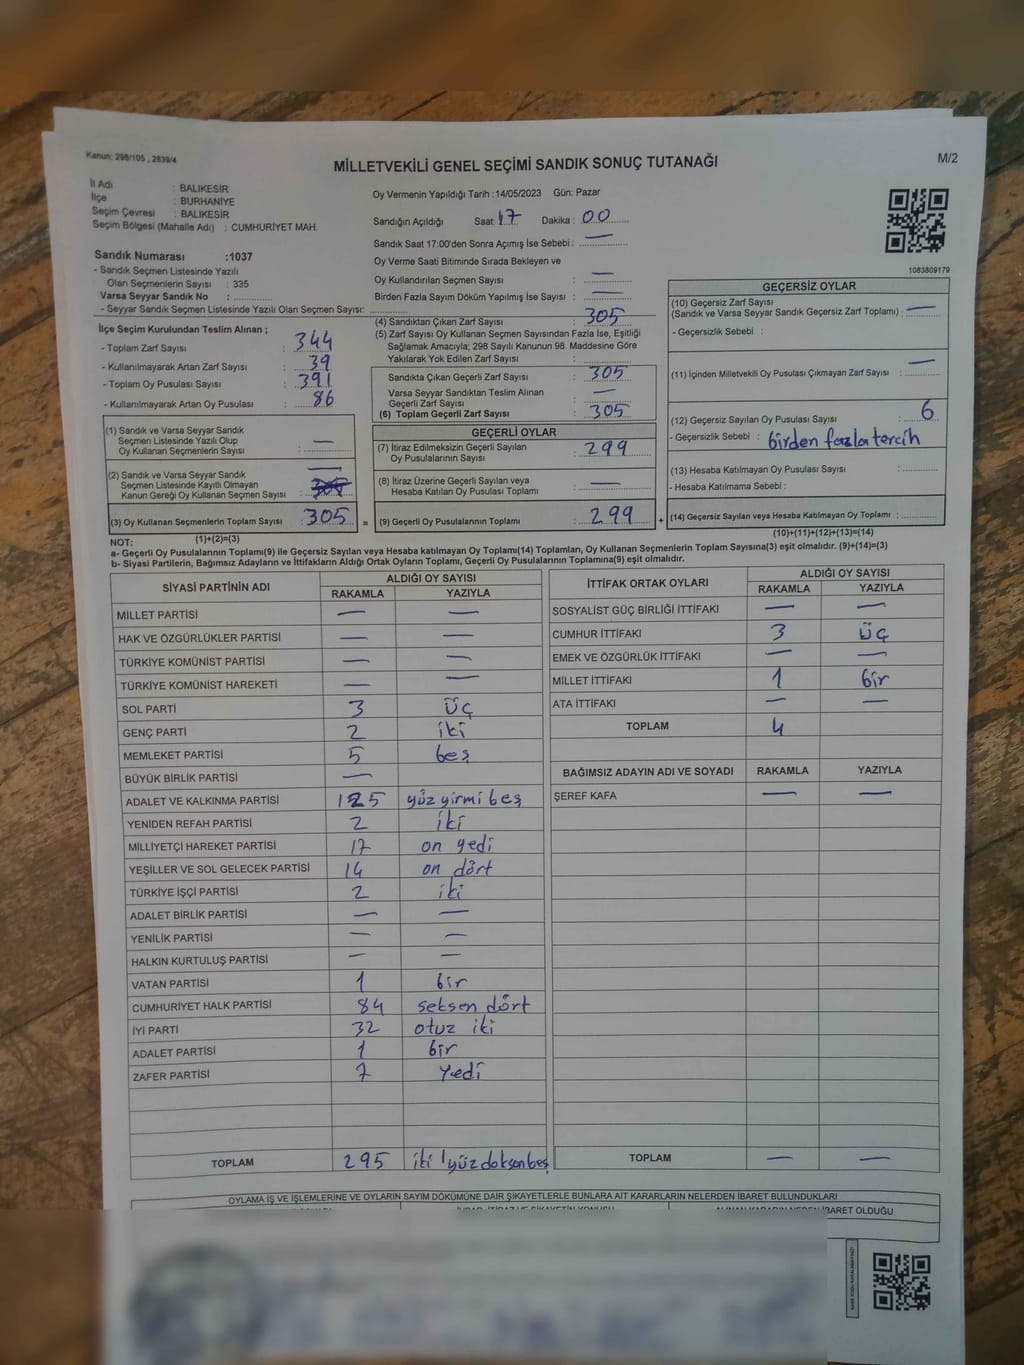 Kanun: 298/105 , 2839/4
MİLLETVEKİLİ GENEL SEÇİMİ SANDIK SONUÇ TUTANAĞI
M/2
İl Adı : BALIKESİR
İlçe : BURHANİYE
Seçim Çevresi : BALIKESİR
Seçim Bölgesi (Mahalle Adı) : CUMHURİYET MAH.
Sandık Numarası :1037
- Sandık Seçmen Listesinde Yazılı
Olan Seçmenlerin Sayısı : 335
Varsa Seyyar Sandık No :
- Seyyar Sandık Seçmen Listesinde Yazılı Olan Seçmen Sayısı:
İlçe Seçim Kurulundan Teslim Alınan ;
- Toplam Zarf Sayısı : 344
- Kullanılmayarak Artan Zarf Sayısı : 39
- Toplam Oy Pusulası Sayısı : 391
- Kullanılmayarak Artan Oy Pusulası : 86
(1) Sandık ve Varsa Seyyar Sandık
Seçmen Listesinde Yazılı Olup
Oy Kullanan Seçmenlerin Sayısı : —
(2) Sandık ve Varsa Seyyar Sandık
Seçmen Listesinde Kayıtlı Olmayan
Kanun Gereği Oy Kullanan Seçmen Sayısı : —
(3) Oy Kullanan Seçmenlerin Toplam Sayısı : 305
(1)+(2)=(3)
Oy Vermenin Yapıldığı Tarih : 14/05/2023 Gün: Pazar
Sandığın Açıldığı Saat: 17 Dakika : 00
Sandık Saat 17:00'den Sonra Açımış İse Sebebi : —
Oy Verme Saati Bitiminde Sırada Bekleyen ve
Oy Kullandırılan Seçmen Sayısı : —
Birden Fazla Sayım Döküm Yapılmış İse Sayısı : —
(4) Sandıktan Çıkan Zarf Sayısı : 305
(5) Zarf Sayısı Oy Kullanan Seçmen Sayısından Fazla İse, Eşitliği
Sağlamak Amacıyla; 298 Sayılı Kanunun 98. Maddesine Göre
Yakılarak Yok Edilen Zarf Sayısı :
Sandıkta Çıkan Geçerli Zarf Sayısı : 305
Varsa Seyyar Sandıktan Teslim Alınan
Geçerli Zarf Sayısı : —
(6) Toplam Geçerli Zarf Sayısı : 305
GEÇERLİ OYLAR
(7) İtiraz Edilmeksizin Geçerli Sayılan
Oy Pusulalarının Sayısı : 299
(8) İtiraz Üzerine Geçerli Sayılan veya
Hesaba Katılan Oy Pusulası Toplamı : —
= (9) Geçerli Oy Pusulalarının Toplamı : 299 +
1083809179
GEÇERSİZ OYLAR
(10) Geçersiz Zarf Sayısı
(Sandık ve Varsa Seyyar Sandık Geçersiz Zarf Toplamı) : —
- Geçersizlik Sebebi :
(11) İçinden Milletvekili Oy Pusulası Çıkmayan Zarf Sayısı : —
(12) Geçersiz Sayılan Oy Pusulası Sayısı : 6
- Geçersizlik Sebebi : birden fazla tercih
(13) Hesaba Katılmayan Oy Pusulası Sayısı :
- Hesaba Katılmama Sebebi :
(14) Geçersiz Sayılan veya Hesaba Katılmayan Oy Toplamı :
(10)+(11)+(12)+(13)=(14)
NOT:
a- Geçerli Oy Pusulalarının Toplamı(9) ile Geçersiz Sayılan veya Hesaba katılmayan Oy Toplamı(14) Toplamları, Oy Kullanan Seçmenlerin Toplam Sayısına(3) eşit olmalıdır. (9)+(14)=(3)
b- Siyasi Partilerin, Bağımsız Adayların ve İttifakların Aldığı Ortak Oyların Toplamı, Geçerli Oy Pusulalarının Toplamına(9) eşit olmalıdır.
SİYASİ PARTİNİN ADI ALDIĞI OY SAYISI
RAKAMLA YAZIYLA
MİLLET PARTİSİ — —
HAK VE ÖZGÜRLÜKLER PARTİSİ — —
TÜRKİYE KOMÜNİST PARTİSİ — —
TÜRKİYE KOMÜNİST HAREKETİ — —
SOL PARTİ 3 üç
GENÇ PARTİ 2 iki
MEMLEKET PARTİSİ 5 beş
BÜYÜK BİRLİK PARTİSİ —
ADALET VE KALKINMA PARTİSİ 125 yüz yirmi beş
YENİDEN REFAH PARTİSİ 2 iki
MİLLİYETÇİ HAREKET PARTİSİ 17 on yedi
YEŞİLLER VE SOL GELECEK PARTİSİ 14 on dört
TÜRKİYE İŞÇİ PARTİSİ 2 iki
ADALET BİRLİK PARTİSİ — —
YENİLİK PARTİSİ — —
HALKIN KURTULUŞ PARTİSİ — —
VATAN PARTİSİ 1 bir
CUMHURİYET HALK PARTİSİ 84 seksen dört
İYİ PARTİ 32 otuz iki
ADALET PARTİSİ 1 bir
ZAFER PARTİSİ 7 yedi
TOPLAM 295 iki yüz doksan beş
İTTİFAK ORTAK OYLARI ALDIĞI OY SAYISI
RAKAMLA YAZIYLA
SOSYALİST GÜÇ BİRLİĞİ İTTİFAKI — —
CUMHUR İTTİFAKI 3 üç
EMEK VE ÖZGÜRLÜK İTTİFAKI — —
MİLLET İTTİFAKI 1 bir
ATA İTTİFAKI — —
TOPLAM 4
BAĞIMSIZ ADAYIN ADI VE SOYADI RAKAMLA YAZIYLA
ŞEREF KAFA — —
TOPLAM — —
OYLAMA İŞ VE İŞLEMLERİNE VE OYLARIN SAYIM DÖKÜMÜNE DAİR ŞİKAYETLERLE BUNLARA AİT KARARLARIN NELERDEN İBARET BULUNDUKLARI
İBARET OLDUĞU